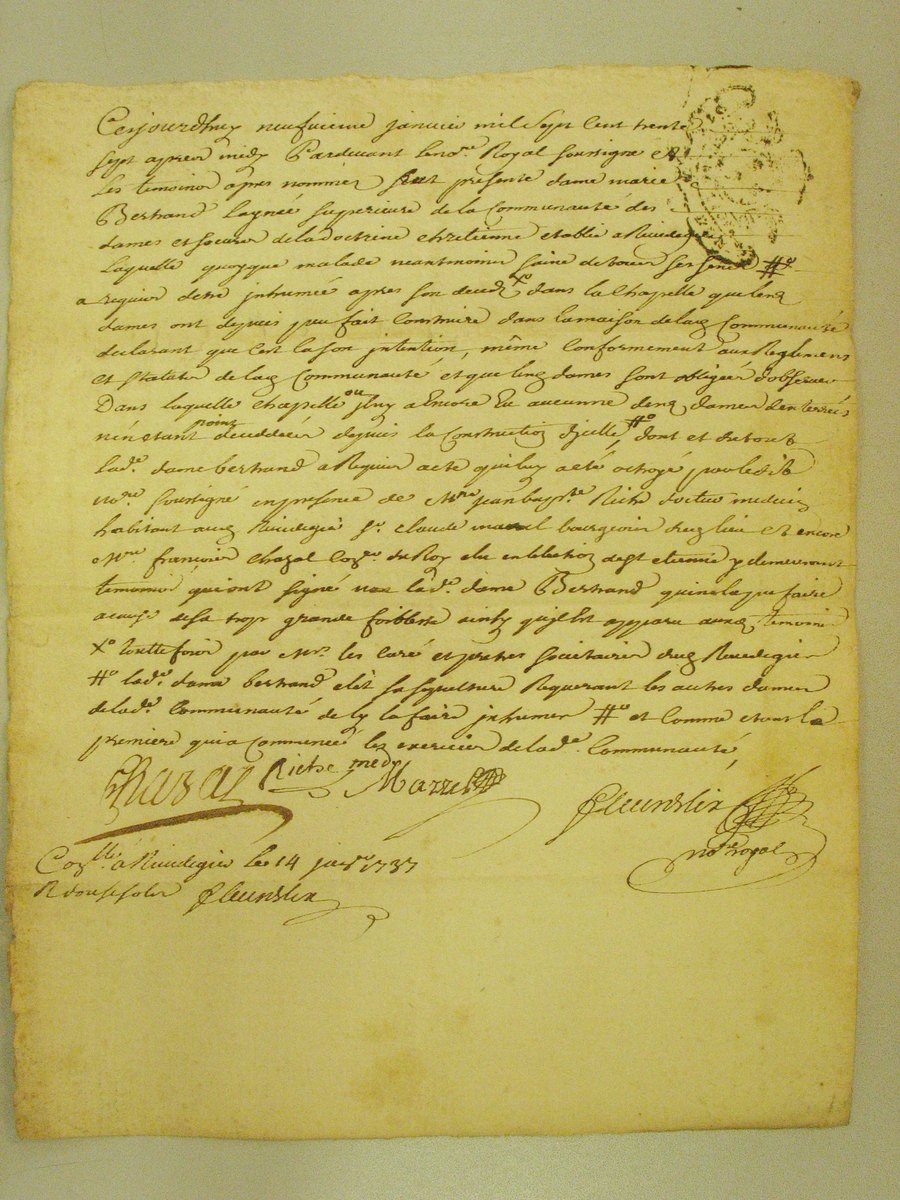 Cejourdhuy neufvieme janvier mil sept cent trente
sept apres midy Pardevant le no.re Royal soussigne et
les temoins apres nommez fut presente dame marie
Bertrand laynée superieure de la Communauté des
dames et soeurs de la doctrine chretienne etablie a Rivedegier
laquelle quoyque malade neantmoins saine de tous ses sens #o
a requis detre jnhumée apres son decedz Xo dans la Chapelle que lesd
dames ont depuis peu fait Construire dans la maison de lad Communauté
declarant que c'est la son jntention, même Conformement aux Reglemens
et statuts de lad Communauté et que lesd dames sont obligées d'observer
Dans laquelle chapelle ou jl ny a Encore Eu aucunne desd dames denterrés
n'en etant point deceddées depuis la Construction djcelle #o, dont et du tout
lad.e dame bertrand a Requis acte qui luy a eté octroyé par ledit
no.re soussigné en presence de Mre jean bap.te Riche docteur medecin
habitant aud Rivedegier Sr. claude mazel bourgeois dud lieu et encore
Mre francois chazal Con.er du Roy elu en lelection de st etienne y demeurant
temoins qui ont signé non lad.e dame Bertrand qui ne la pu faire
a cause de sa trop grande foiblesse ainsy quil est apparu auxd temoins
Xo touttefois par Mrs. les Curé et pretres societaires dud Rivedegier
#o lad.e dame bertrand elit sa sepulture Requerant les autres dames
de lad.e Communauté de ly la faire jnhumer #o et Comme etant la
premiere qui a Commencé les exercices de lad.e Communauté,
Chazal Riche med Mazel
fleurdelix
no.re royal
Con.llé à Rivedegier le 14 janv.er 1737
R douse sols fleurdelix